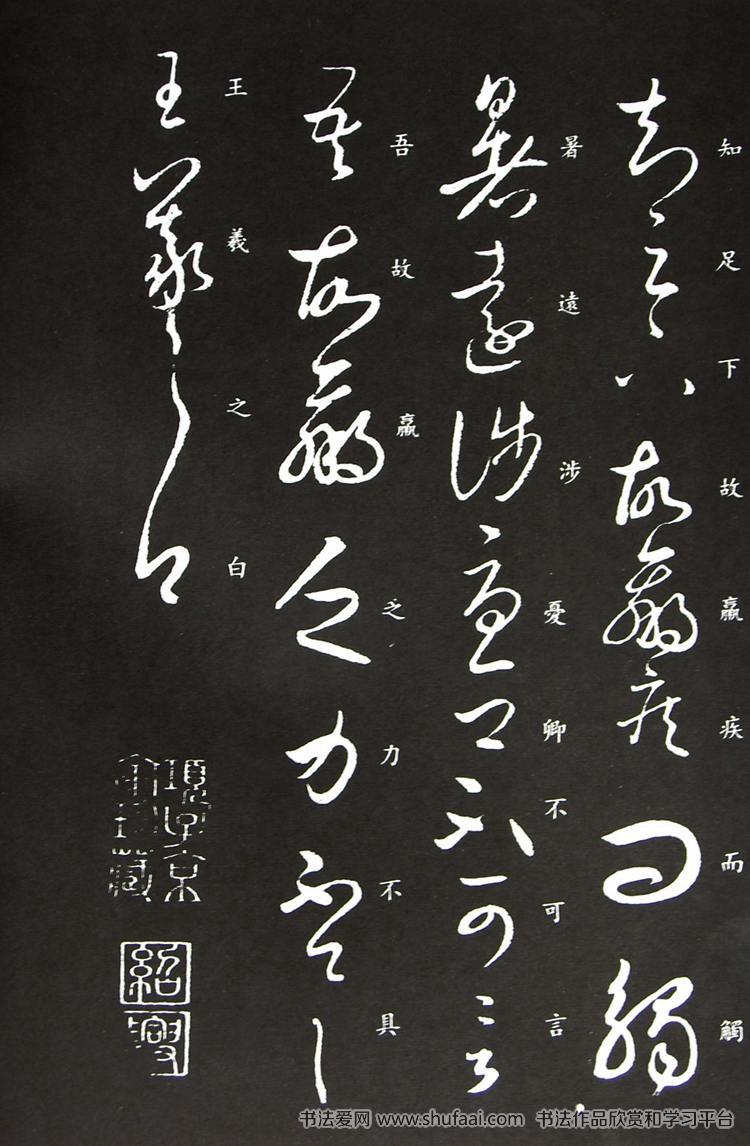 知足下故羸疾而觸
暑遠涉憂卿不可言
吾故羸之力不具
王羲之白
項子京
家珍藏
紹興
书法爱网 www.shufaai.com 书法作品欣赏和学习平台